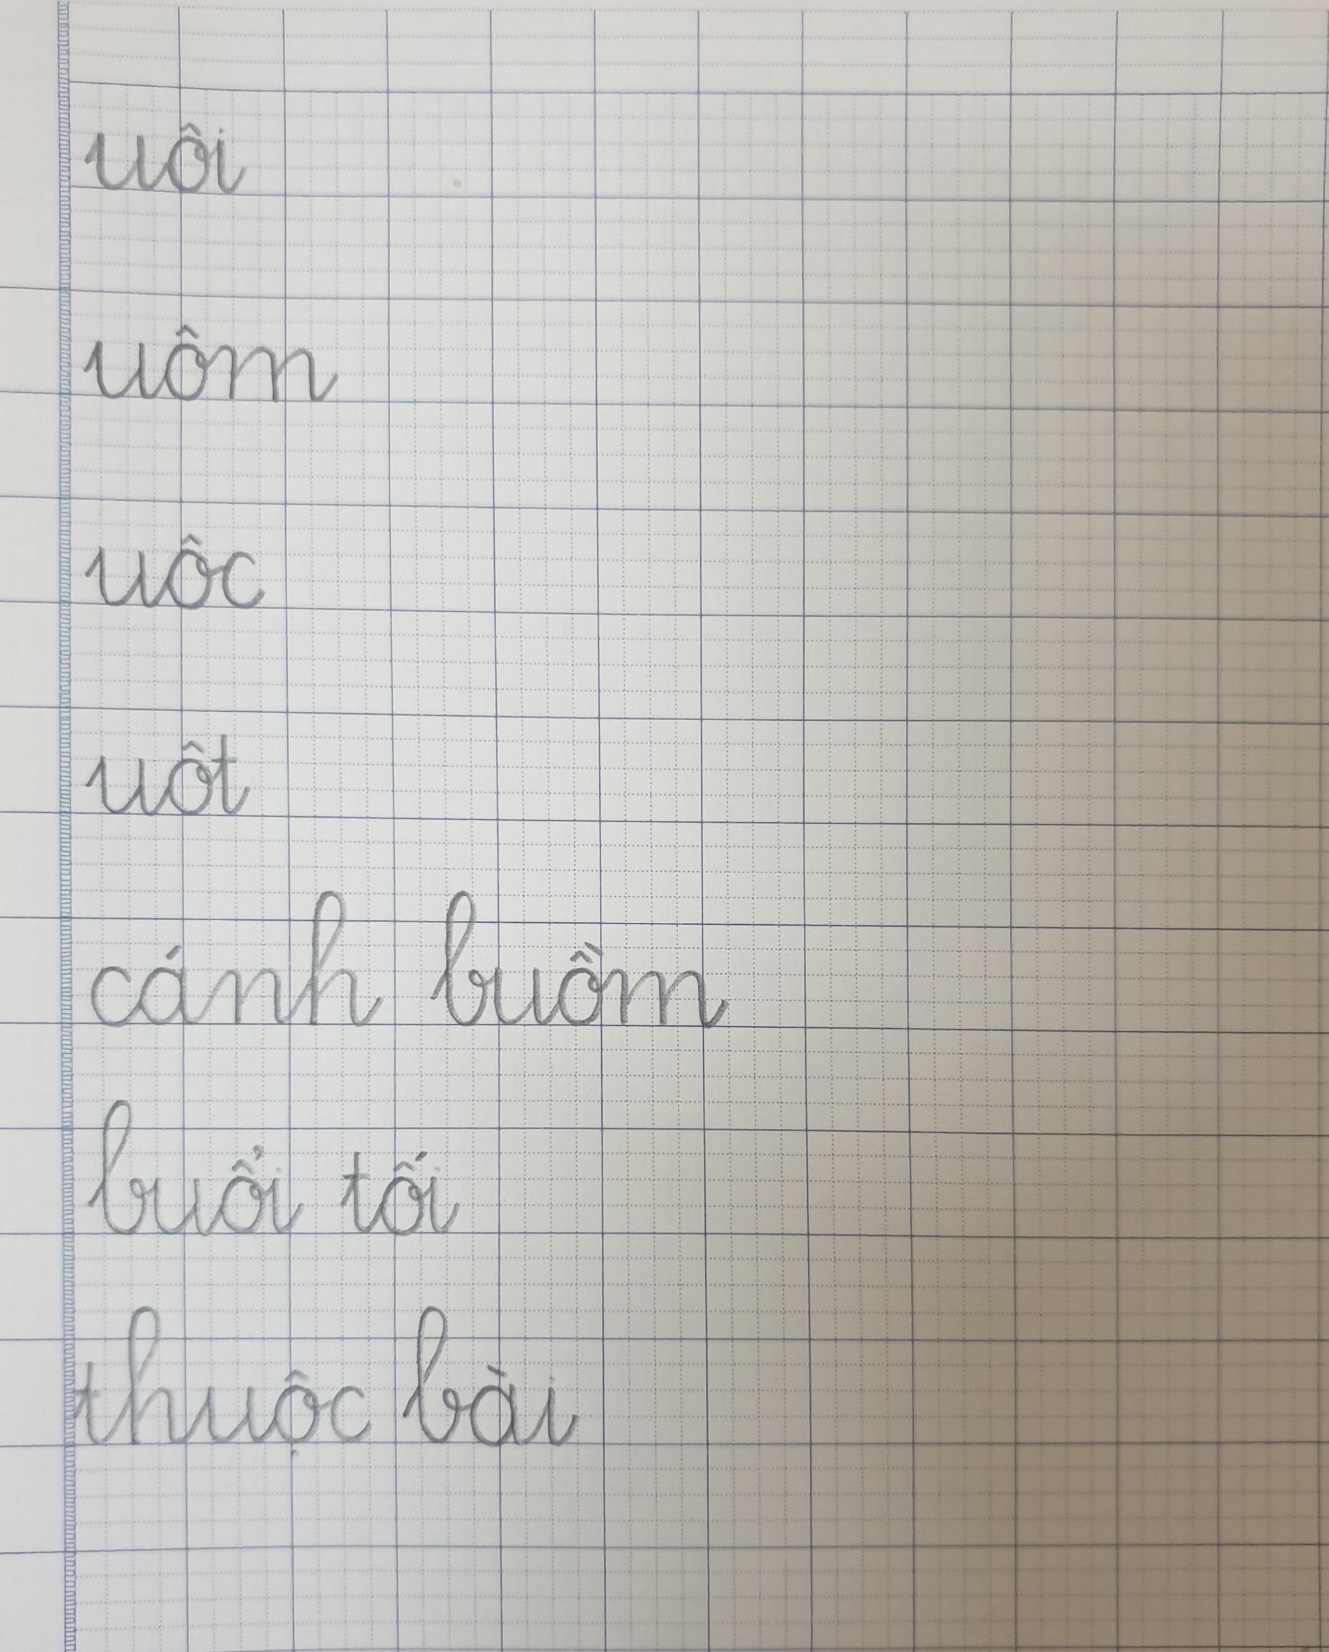 uôi
uôm
uôc
uôt
cánh buồm
buổi tối
thuộc bài